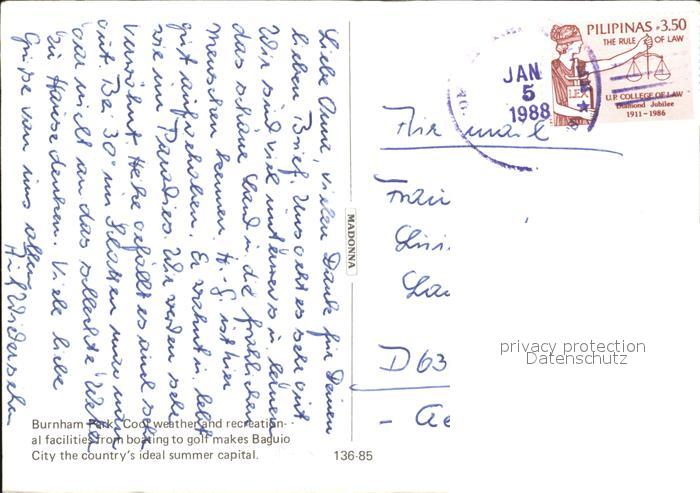 Liebe Anna, vielen Dank für Deinen
lieben Brief. Uns geht es sehr gut
Wir sind viel unterwegs u. lernen
das schöne Land u. die fröhlichen
Menschen kennen. H.-J. ist hier
gut aufgehoben. Er wohnt u. lebt
wie im Paradies. Wir werden sehr
verwöhnt. gefällt es auch sehr
gut. Bei 30° im Schatten man
gar nicht an das schlechte Wetter
zu Hause denken. Viele liebe
Grüße von uns allen
Auf Wiedersehn
Burnham Park: Cool weather and recreation-
al facilities from boating to golf makes Baguio
City the country's ideal summer capital.
136-85
MADONNA
JAN
5
1988
PILIPINAS P3.50
THE RULE OF LAW
LEX
U.P. COLLEGE OF LAW
Diamond Jubilee
1911-1986
Air mail
Frau
D 63
privacy protection
Datenschutz